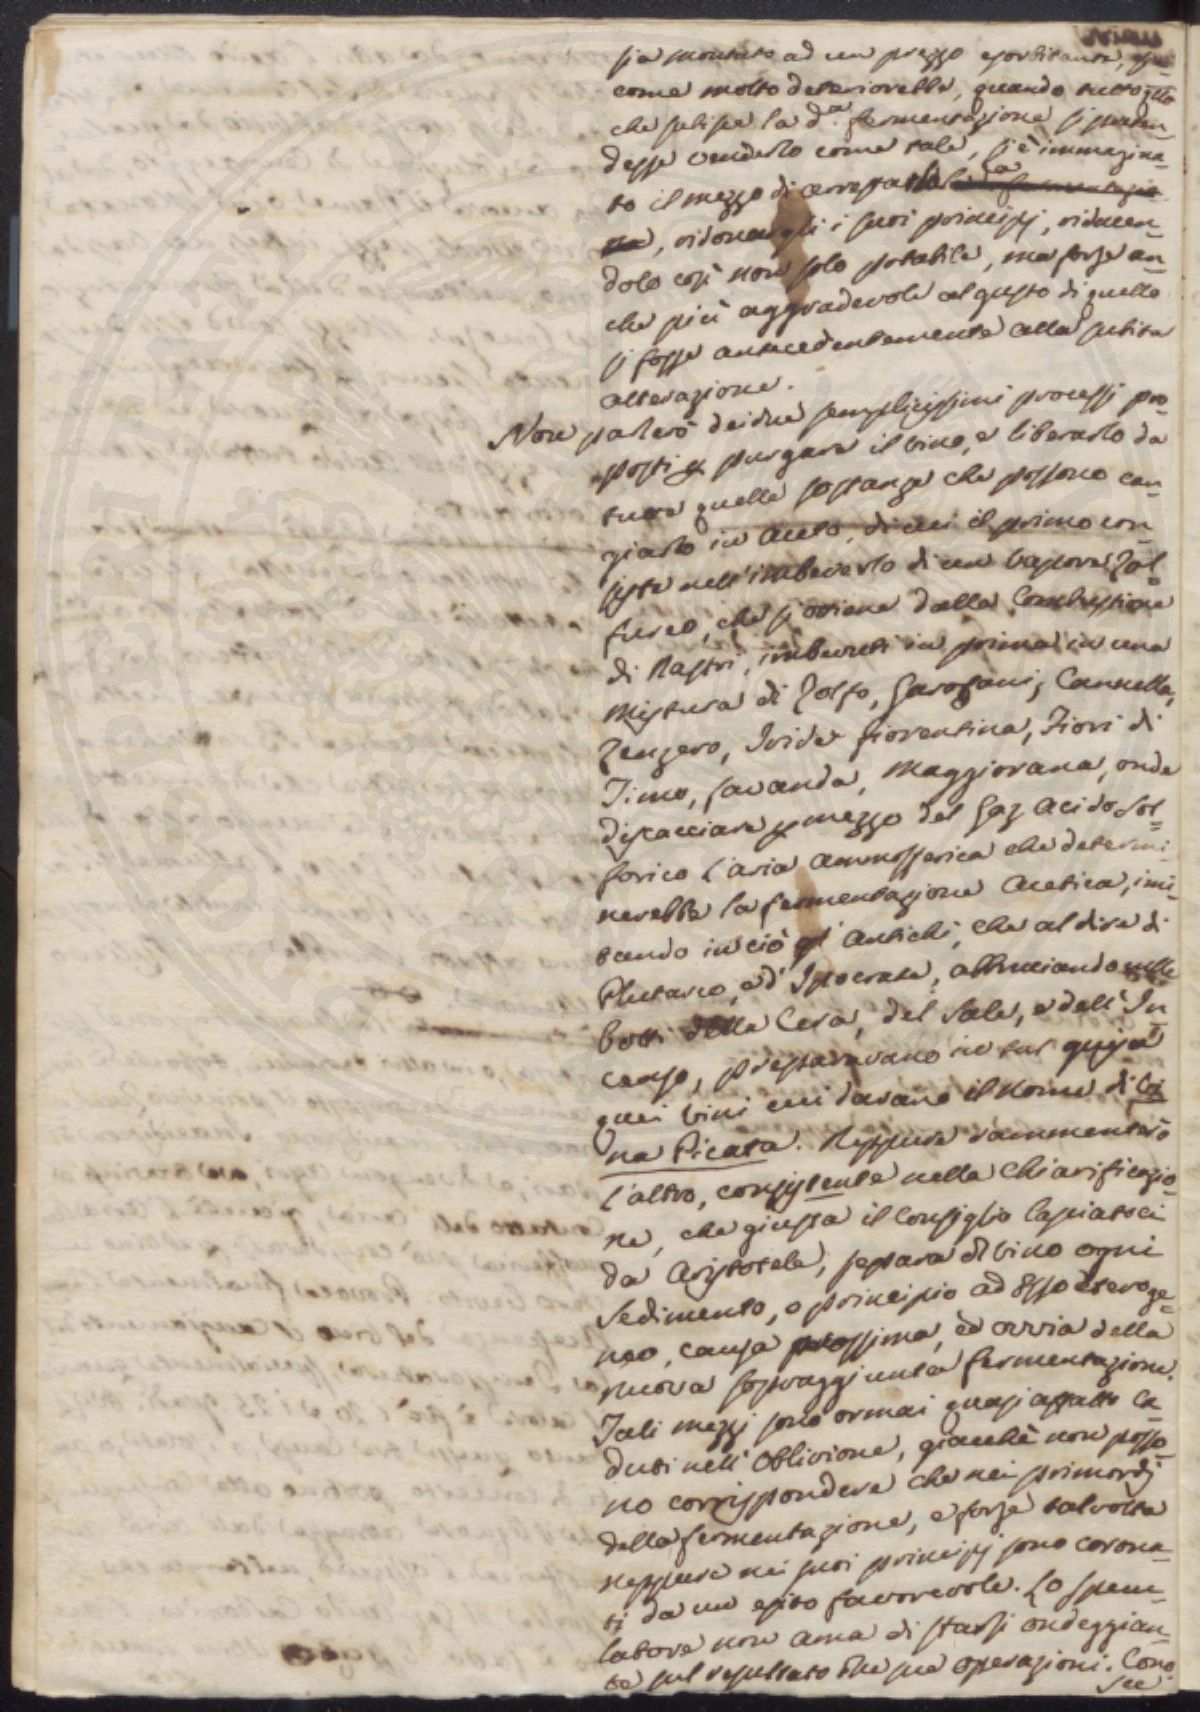 sia montato ad un prezzo esorbitante,
come molto deteriorebbe, quando tutto
che subisse la d.a fermentazione si preten-
desse venderlo come tale, si è immagina-
to il mezzo di arrestarla la fermentazio-
ne, ridonargli i suoi principj, riducen-
dolo così non solo potabile, ma forse an-
che più aggradevole al gusto di quello
si fosse antecedentemente alla subita
alterazione.
Non parlerò dei due semplicissimi processi pro-
posti p purgare il vino, e liberarlo da
tutte quelle sostanze che possono can-
giarlo in aceto, di cui il primo con-
siste nell'imbeverlo di un vapore Zol-
fureo, che si ottiene dalla Combustione
di Nastri, imbevuti in prima in una
Mistura di Zolfo, Garofani, Cannella,
Zenzero, Iride fiorentina, Fiori di
Timo, Lavanda, Maggiorana, onde
discacciare p mezzo del Gaz acido Sol-
forico l'aria ammosferica che determi-
nerebbe la fermentazione Acetica, imi-
tando in ciò gl' Antichi, che al dire di
Plutarco, e d' Ipocrate, abbruciando nelle
botti della Cera, del Sale, e dell' In-
censo, preparavano in tal guisa
quei vini cui davano il nome di Vi-
na Picata. Neppure rammenterò
l'altro, consistente nella Chiarificazio-
ne, che giusta il Consiglio lasciatoci
da Aristotele, separa dl vino ogni
Sedimento, o principio ad Esso eteroge-
neo, causa prossima, ed ovvia della
nuova sopraggiunta fermentazione.
Tali mezzi sono ormai quasi affatto ca-
duti nell' Oblivione, giacchè non posso-
no corrispondere che nei primordj
della fermentazione, e forse talvolta
neppure nei suoi principj sono corona-
ti da un esito favorevole. Lo specu-
latore non ama di starsi ondeggian-
te sul resultato lle sue operazioni. Cono-
sce